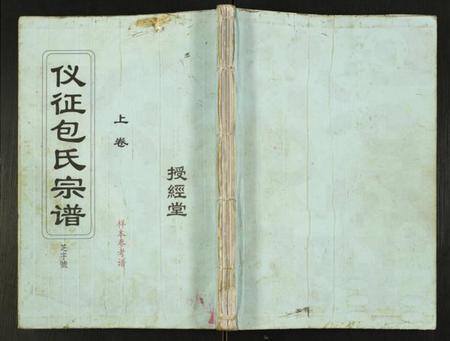 仪征包氏宗谱
芝字號
上卷
样本参考谱
授經堂